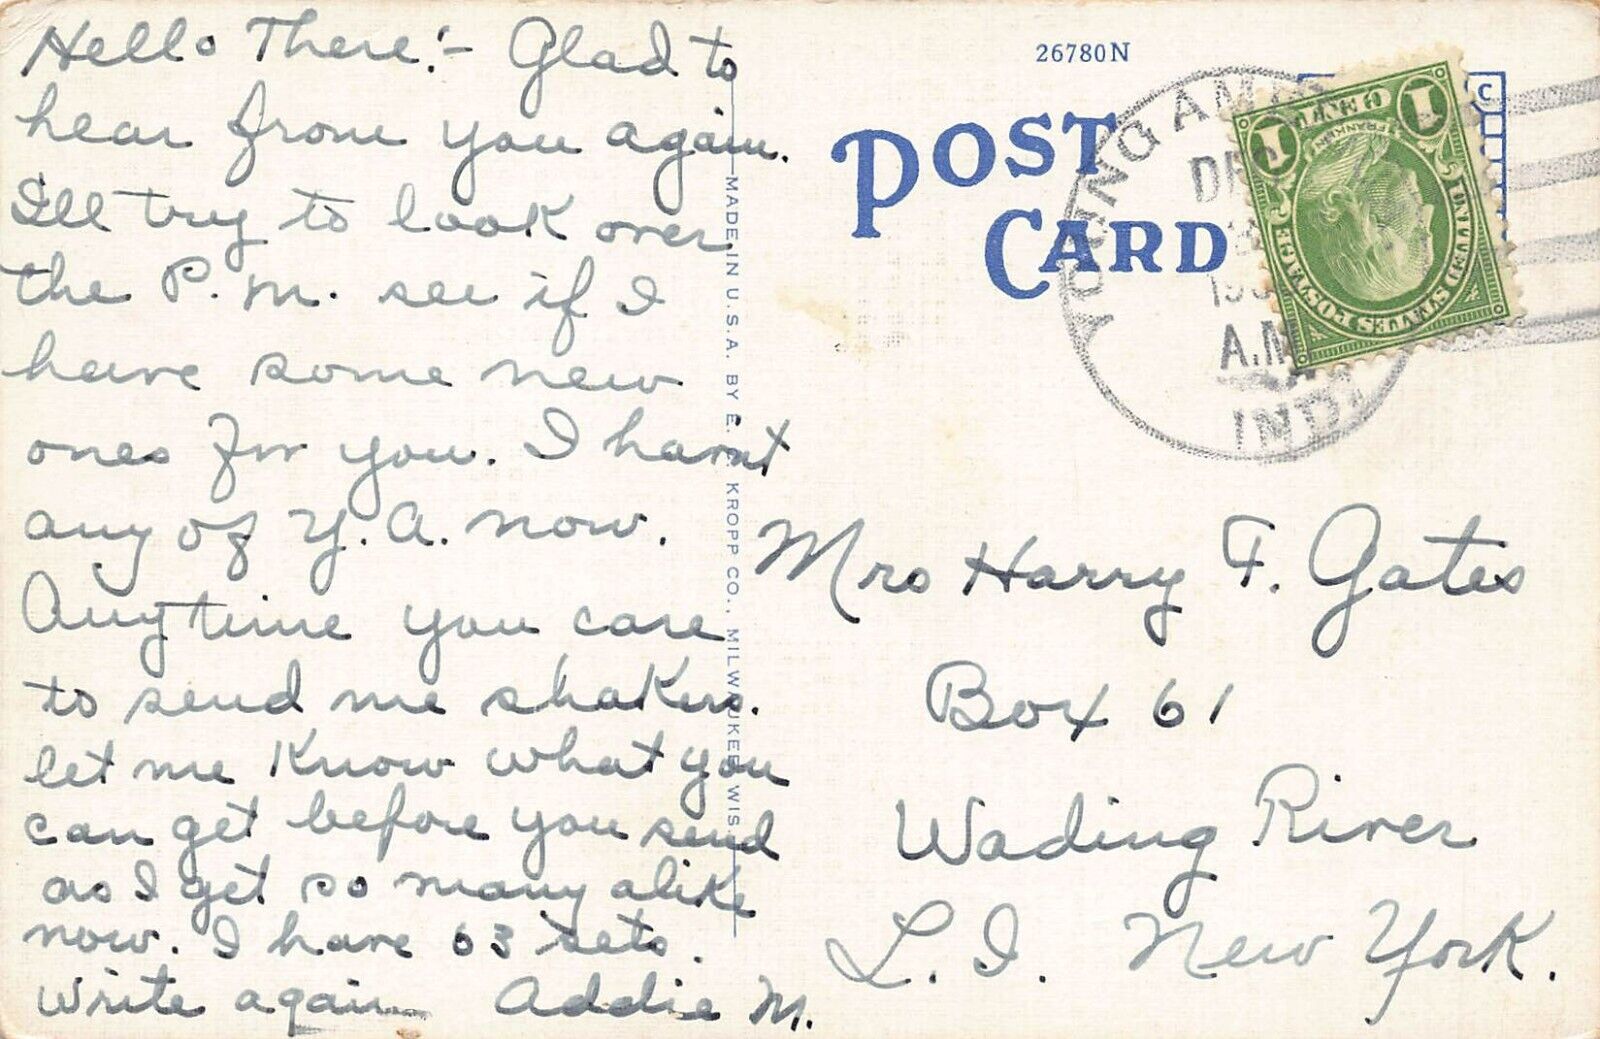 Hello There:- Glad to
hear from you again.
I'll try to look over
the P.M. see if I
have some new
ones for you. I havnt
any of Y.A. now.
Anytime you care
to send me shakers.
let me know what you
can get before you send
as I get so many alike
now. I have 63 sets.
Write again Addie M.
MADE IN U.S.A. BY E. C. KROPP CO., MILWAUKEE, WIS.
26780N
POST
CARD
YOUNG AMERICA
DEC
A.M.
IND.
UNITED STATES POSTAGE
FRANKLIN
1 CENT 1
Mrs Harry F. Gates
Box 61
Wading River
L.I. New York.